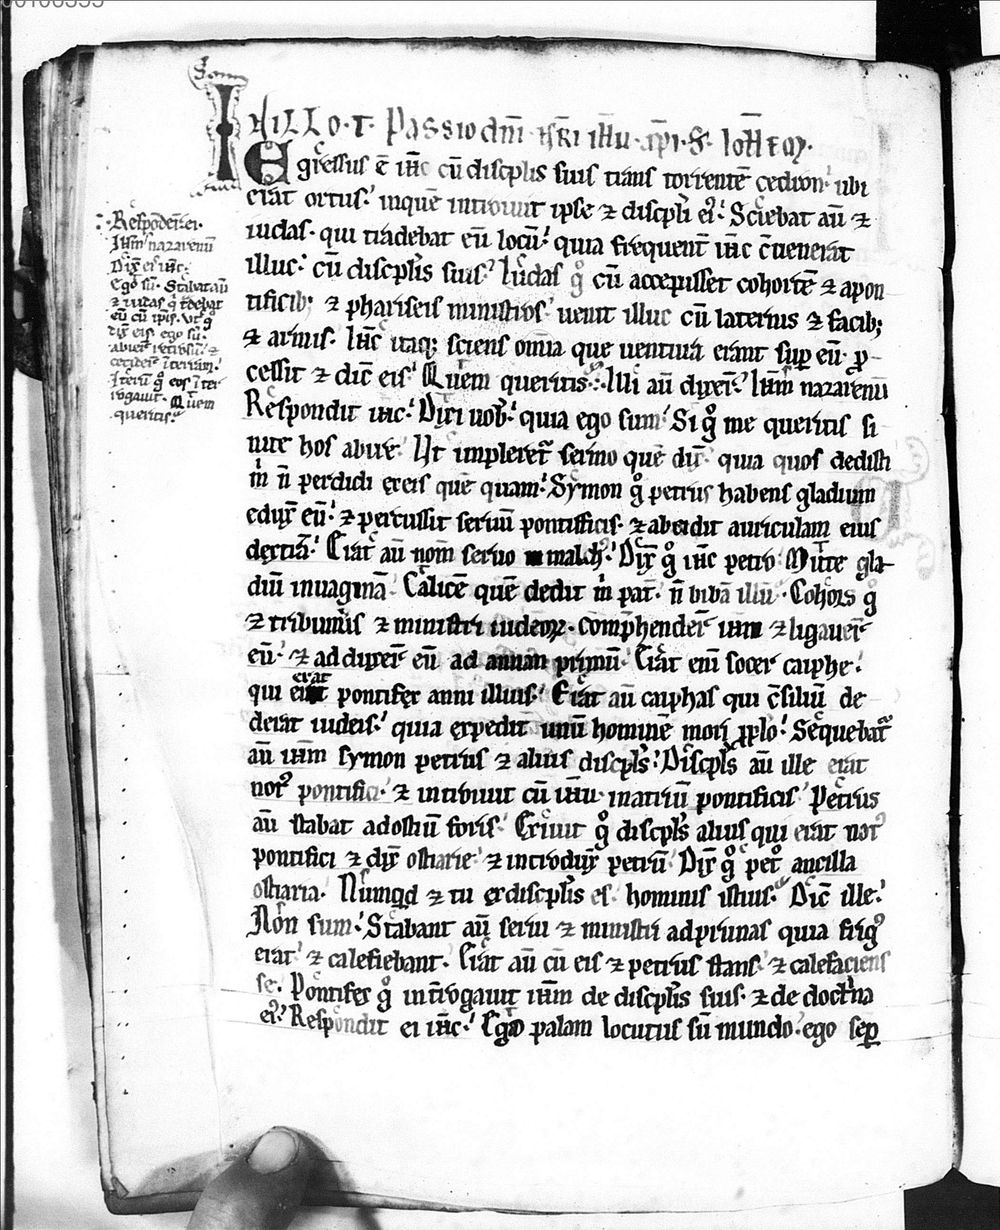 IN ILLO·T· Passio dn̄i nr̄i ih̄u xp̄i·S· Ioh̄em·
Egressus ē ih̄c cū discipl̄is suis trans torrentē cedron· ubi
erat ortus· inquē introiuit ipse ⁊ discipl̄i eiꝰ· Sciebat aū ⁊
iudas· qui tradebat eū locū· quia frequent̄ ih̄c c̄uenerat
illuc· cū discipl̄is suis· Iudas g̊ cū accepisset cohortē ⁊ apon
tificib; ⁊ phariseis ministros· uenit illuc cū laternis ⁊ facib;
⁊ armis· Ih̄c itaq; sciens om̄ia que uentura erant suꝑ eū· ꝓ-
cessit ⁊ dic̄ eis· Quem queritis· Illi aū dixer̄· Ih̄m nazarenū
Respondit ih̄c· Dixi uob̄· quia ego sum· Si g̊ me queritis si
nite hos abire· Ut impleret̄ sermo quē dix̄· quia quos dedisti
m̄ n̄ perdidi exeis quē quam· Symon g̊ petrus habens gladium
edux̄ eū· ⁊ percussit seruū pontificis· ⁊ abcidit auriculam eius
dextrā· Erat aū nom̄ seruo malchꝰ· Dix̄ g̊ ih̄c petro· Mitte gla-
diū inuaginā· Calicē quē dedit m̄ pat̄· n̄ bibā illū· Cohors g̊
⁊ tribunus ⁊ ministri iudeoꝝ· comp̄henderr̄ ih̄m ⁊ ligauer̄
eū· ⁊ adduxer̄ eū ad annan primū· Erat eni socer caiphe·
erat
qui pontifex anni illius· Erat aū caiphas qui c̄siliū de
derat iudeis· quia expedit̄ unū hominē mori ꝓpl̄o· Sequebat̄
aū ih̄m symon petrus ⁊ alius discipl̄s· Discipl̄s aū ille erat
notꝰ pontifici· ⁊ introiuit cū ih̄u inatriū pontificis· Petrus
aū stabat adostiū foris· Exiuit g̊ discipl̄s alius qui erat notꝰ
pontifici ⁊ dix̄ ostiarie· ⁊ introdux̄ petrū· Dix̄ g̊ pet̊ ancilla
ostiaria· Numqd ⁊ tu exdiscipl̄is es· hominis istius· Dic̄ ille·
Non sum· Stabant aū serui ⁊ ministri adprunas quia frigꝰ
erat· ⁊ calefiebant· Erat aū cū eis ⁊ petrus stans· ⁊ calefaciens
se· Pontifex g̊ int̄rogauit ih̄m de discipl̄is suis· ⁊ de doctrina
eiꝰ· Respondit ei ih̄c· Ego palam locutus sū mundo· ego seꝑ
Responder̄ ei·
Ih̄m nazarenū
Dix̄ eis ih̄c·
Ego sū· Stabat aū
⁊ iudas q̄ t̄debat
eū cū ipis· Ut g̊
dix̄ eis· ego sū·
abier̄ retrorsū· ⁊
cecider̄ ī terram·
Iterū g̊ eos īter
rogauit· Quem
queritis·